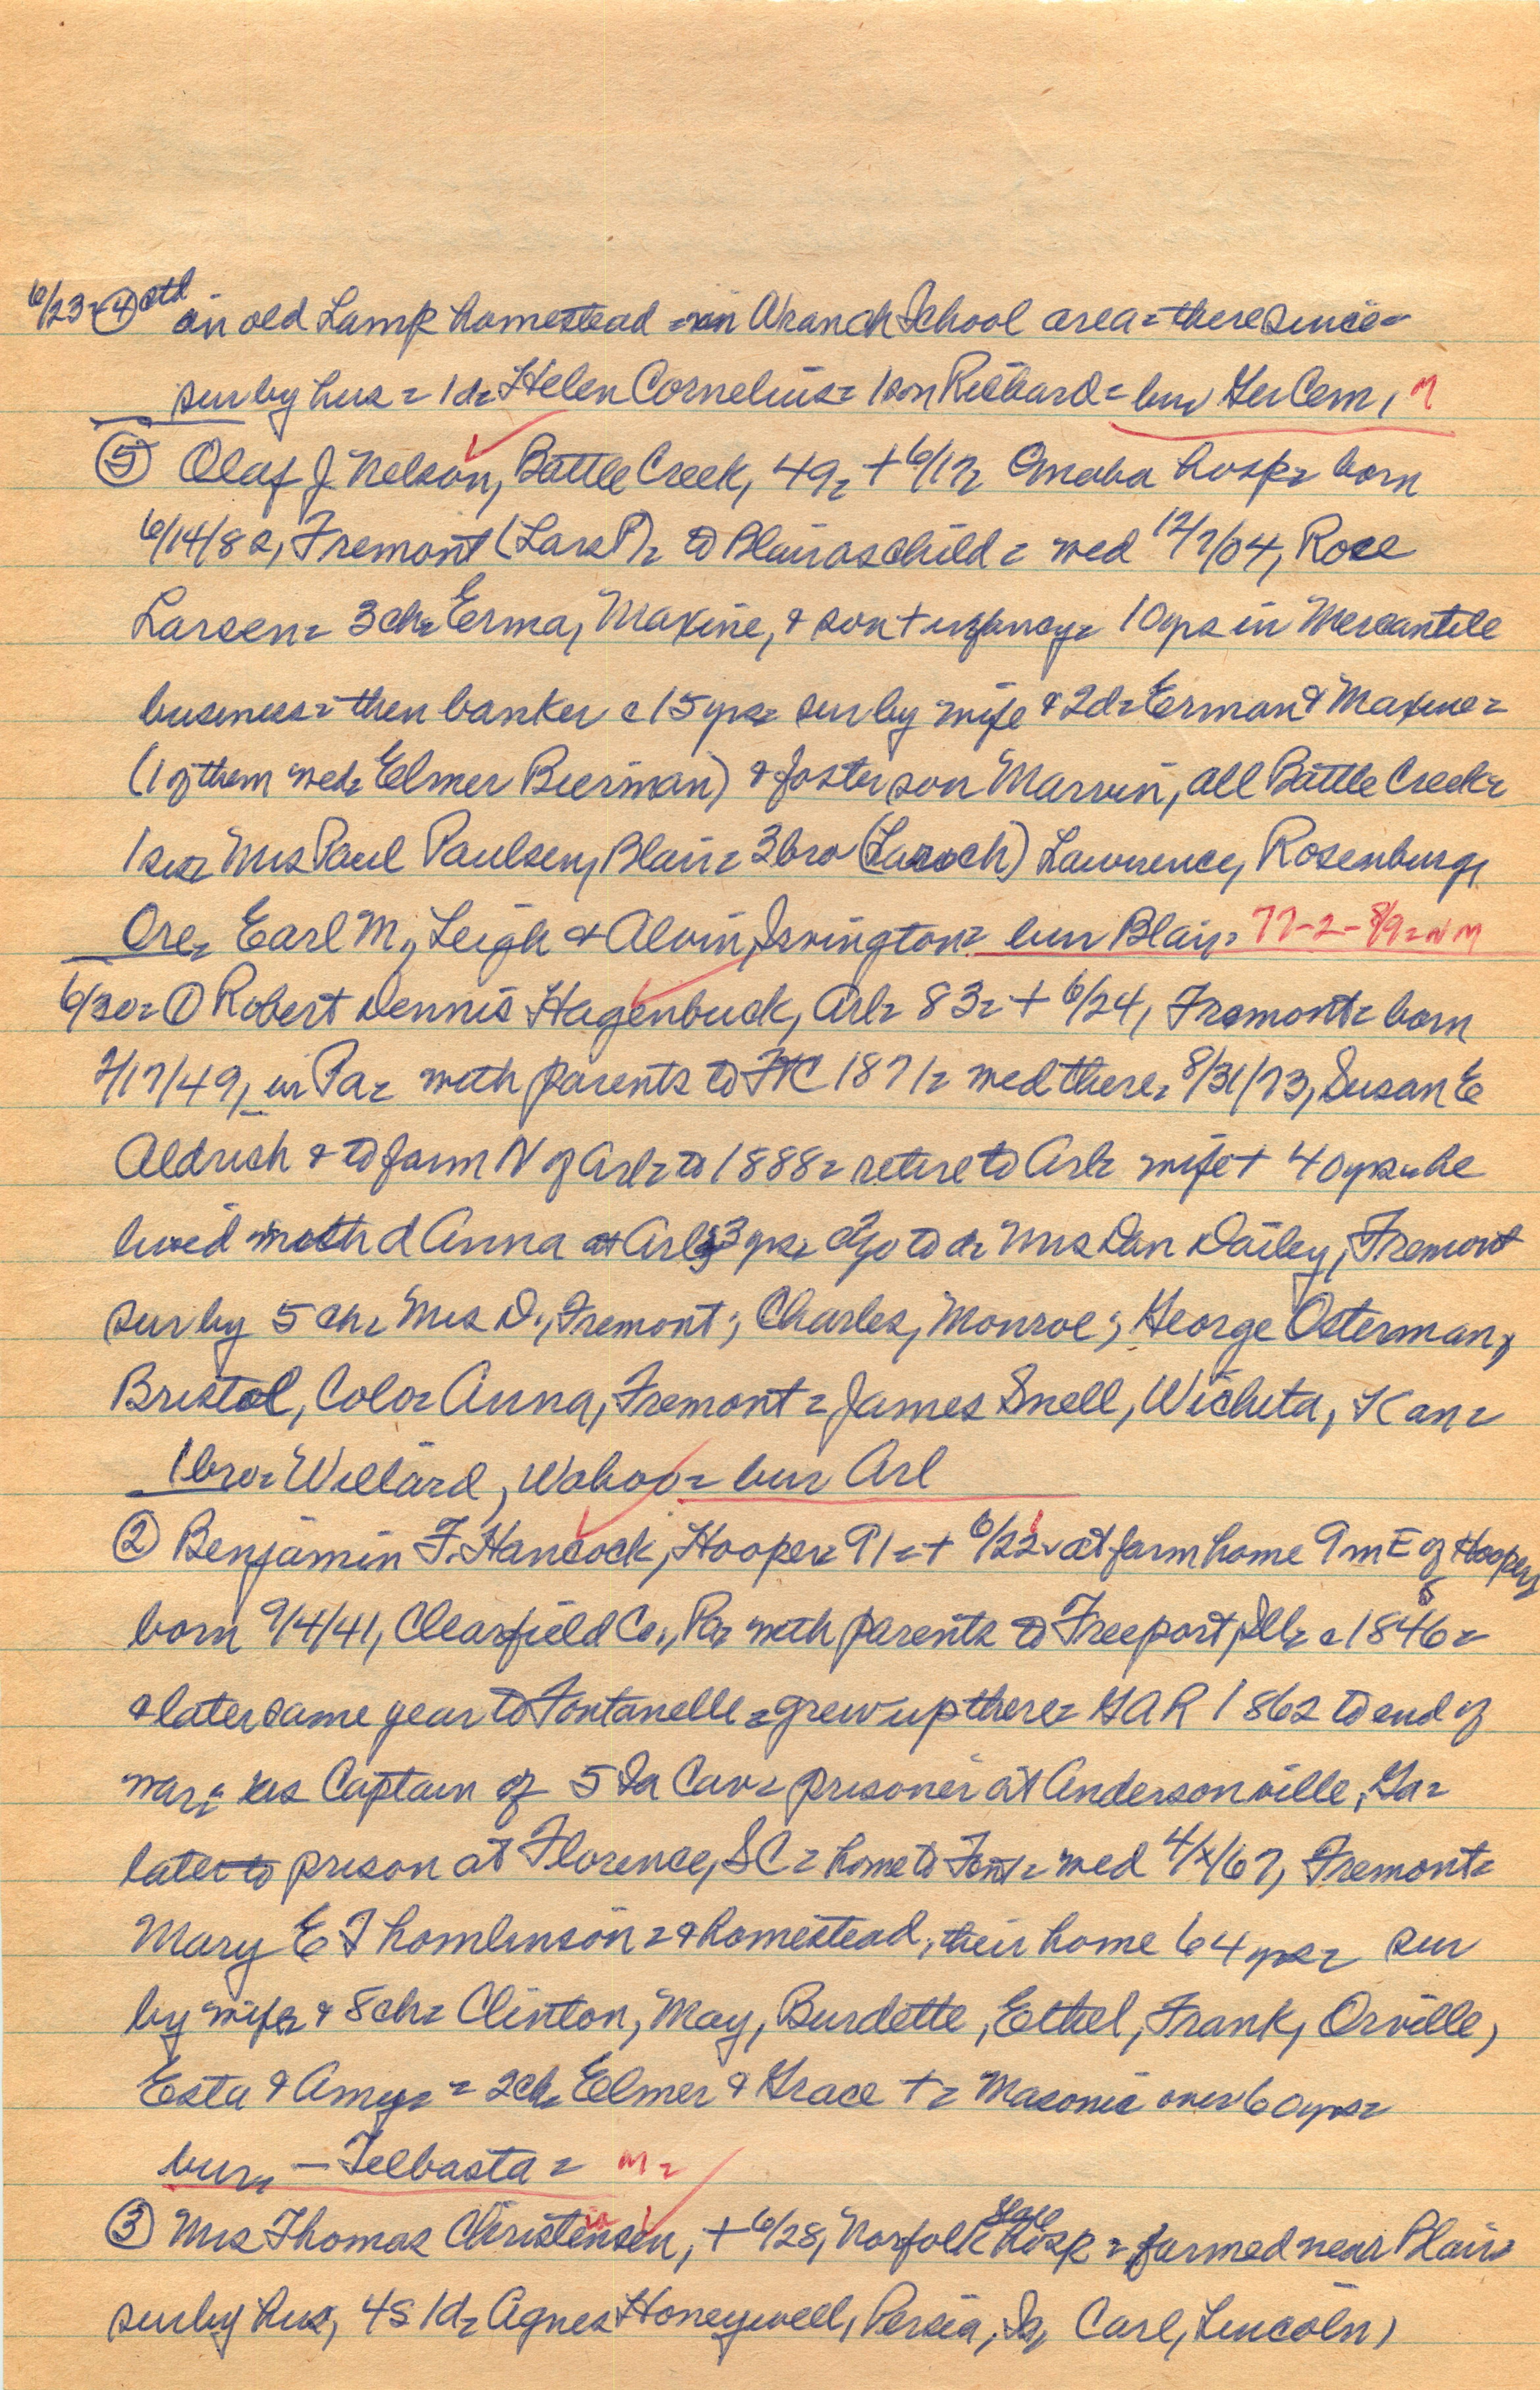 6/23= ④ ctd on old Lamp homestead = in Branch School area = there since =
sur by hus = 1d= Helen Cornelius= 1 son Richard = bur Ger Cem, M
⑤ Olaf J Nelson, Battle Creek, 49= + 6/17= Omaha hosp= born
6/14/82, Fremont (Lars P)= to Blair as child = wed 12/7/04, Rose
Larsen= 3 ch= Erma, Maxine, & son + infancy= 10 yrs in Mercantile
business= then banker c 15 yrs= sur by wife & 2d= Erma & Maxine=
(1 of them wed= Elmer Bierman) & foster son Marvin, all Battle Creek=
1 sis= Mrs Paul Paulsen, Blair= 3 bro Lawrence, Rosenburg,
Ore= Earl M, Leigh & Alvin, Irvington= bur Blair= 77-2-8/9= N M
6/30= ① Robert Dennis Hagenbuck, Arl= 83= + 6/24, Fremont= born
2/17/49, in Pa= with parents to 1871= wed there= 8/31/73, Susan E
Aldrich & to farm N of Arl= to 1888= retire to Arl= wife + 40 yrs= he
lived with d Anna at Arl 3 yrs= ago to d= Mrs Dan Dailey, Fremont
sur by 5 ch= Mrs D., Fremont; Charles, Monroe; George Osterman,
Bristol, Colo= Anna, Fremont= James Snell, Wichita, Kan=
1 bro= Willard, Wahoo= bur Arl
② Benjamin F. Hancock, Hooper= 91= + 6/22= at farm home 9 m E of Hooper,
born 9/4/41, Clearfield Co., Pa= with parents to Freeport, Ill= c 1846=
& later same year to Fontanelle= grew up there= GAR 1862 to end of
war= Captain of 5 Ia Cav= prisoner at Andersonville, Ga=
later to prison at Florence, SC= home to Font= wed 4/x/67, Fremont=
Mary E Thomlinson= & homestead, their home 64 yrs= sur
by wife= & 8 ch= Clinton, May, Burdette, Ethel, Frank, Orville,
Esta & Amy= = 2 ch= Elmer & Grace += Masonic over 60 yrs=
bur= — Telbasta= M=
③ Mrs Thomas Christensen, + 6/28, Norfolk State hosp= farmed near Blair=
sur by hus, 4s 1d= Agnes Honeywell, Persia, Ia, Carl, Lincoln,